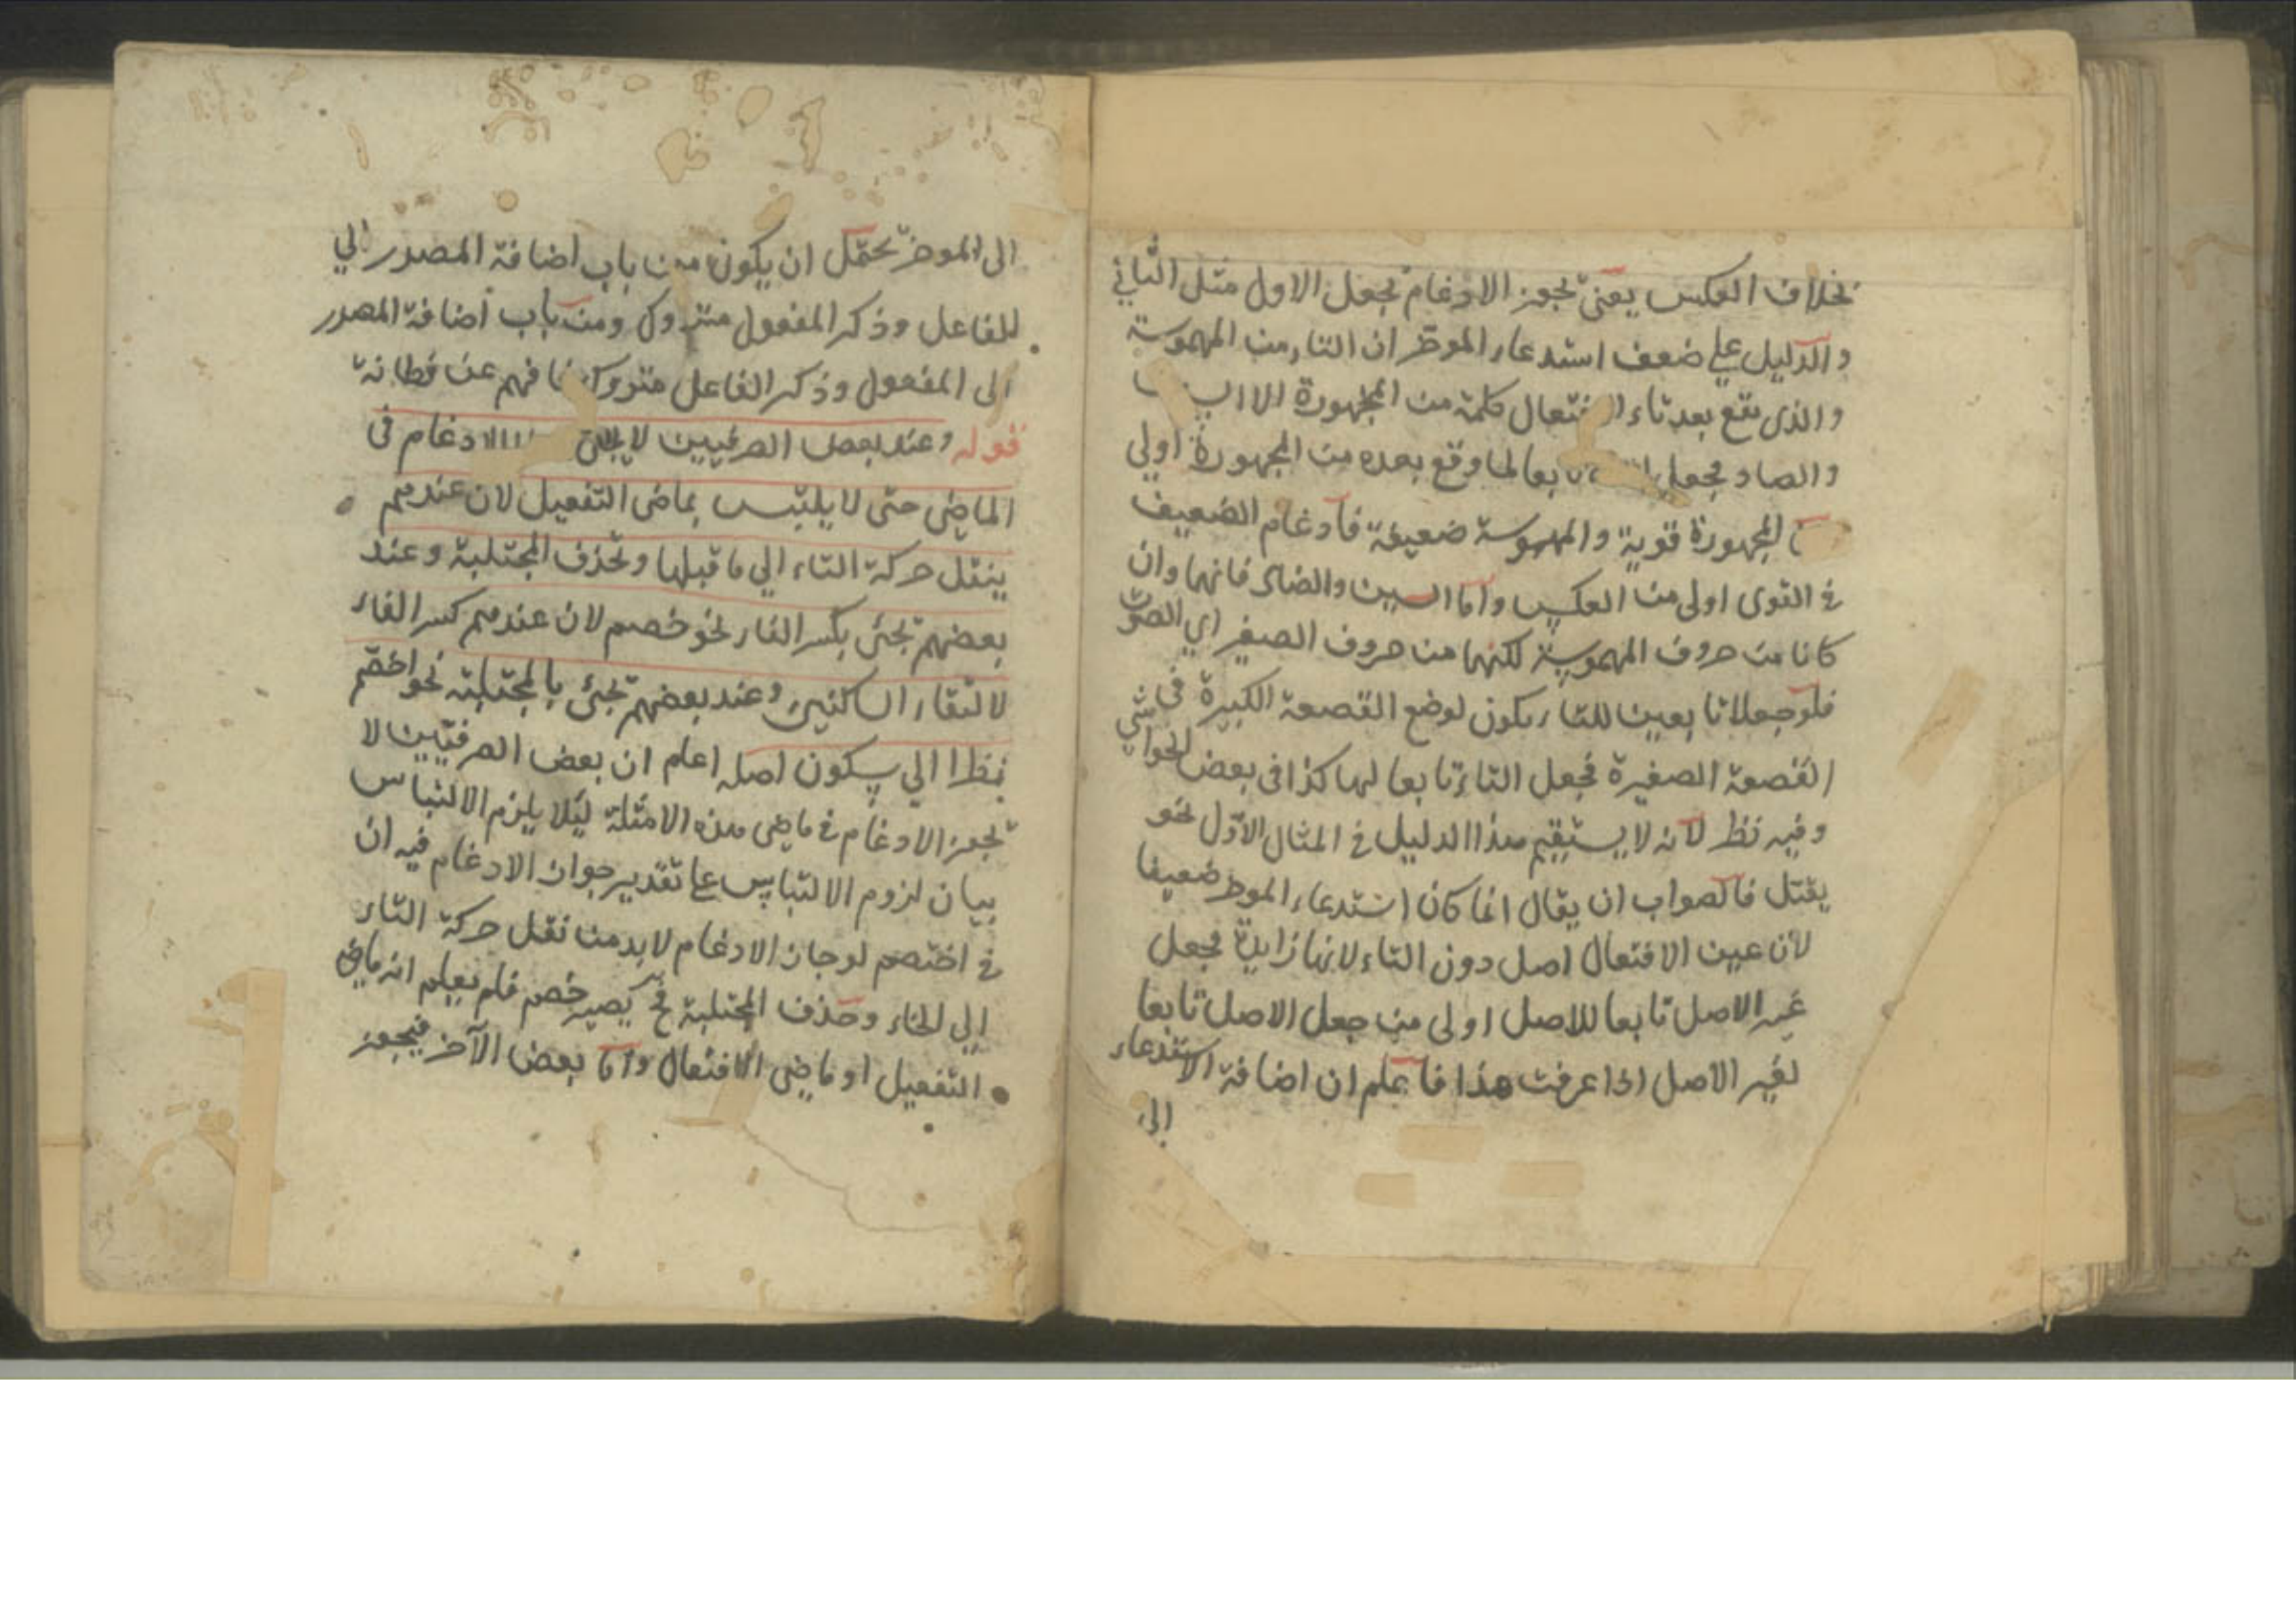 بخلاف العكس يعنى تجوز الادغام بجعل الاول مثل الثاني
والدليل على ضعف استدعاء الموخر ان التاء من المهموسة
والذى يقع بعد تاء كلمة من المجهورة الا
والصاد فجعل لما وقع بعده من المجهورة اولى
المجهورة قوية والمهموسة ضعيفة فادغام الضعيف
في القوى اولى من العكس واما السين والضاد فانهما وان
كانا من حروف المهموسة لكنهما من حروف الصفير اي الصوت
فلو جعلا تابعين للتاء يكون لوضع القصعة الكبيرة فى
القصعة الصغيرة فجعل التاء تابعا لهما كذا فى بعض الحواشي
وفيه نظر لانه لا يستقيم هذا الدليل في المثال الاوّل نحو
يقتل فالصواب ان يقال انما كان استدعاء الموخر ضعيفا
لان عين الافتعال اصل دون التاء لانها زايدة فجعل
غير الاصل تابعا للاصل اولى من جعل الاصل تابعا
لغير الاصل اذا عرفت هذا فاعلم ان اضافة الاستدعاء
الى
الى الموخر يحتمل ان يكون من باب اضافة المصدر الي
للفاعل وذكر المفعول متروك ومن باب اضافة المصدر
الى المفعول وذكر الفاعل متروك فافهم عن فطانة
قوله وعند بعض الصرفيين لا الادغام فى
الماضي حتى لا يلتبس بماضى التفعيل لان عندهم
ينقل حركة التاء الي ما قبلها وتحذف المجتلبة وعند
بعضهم تجئ بكسر الفاء نحو خصم لان عندهم كسر الفاء
لالتقاء الساكنين وعند بعضهم تجئ بالمجتلبة نحو اخصّم
نظرا الي سكون اصله اعلم ان بعض الصرفيّين لا
تجوز الادغام في ماضى هذه الامثلة ليئلا يلزم الالتباس
بيان لزوم الالتباس على تقدير جواز الادغام فيه ان
في اختصم لو جاز الادغام لا بد من نقل حركة التاء
الي الخاء وحذف المجتلبة فح يصير خصم فلم يعلم انه ماضى
التفعيل او ماضي الافتعال واما بعض الآخر فيجوز